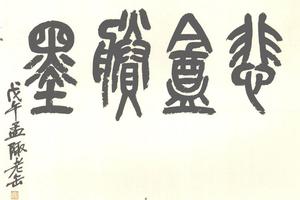 悲盦賸墨
戊午孟陬老缶